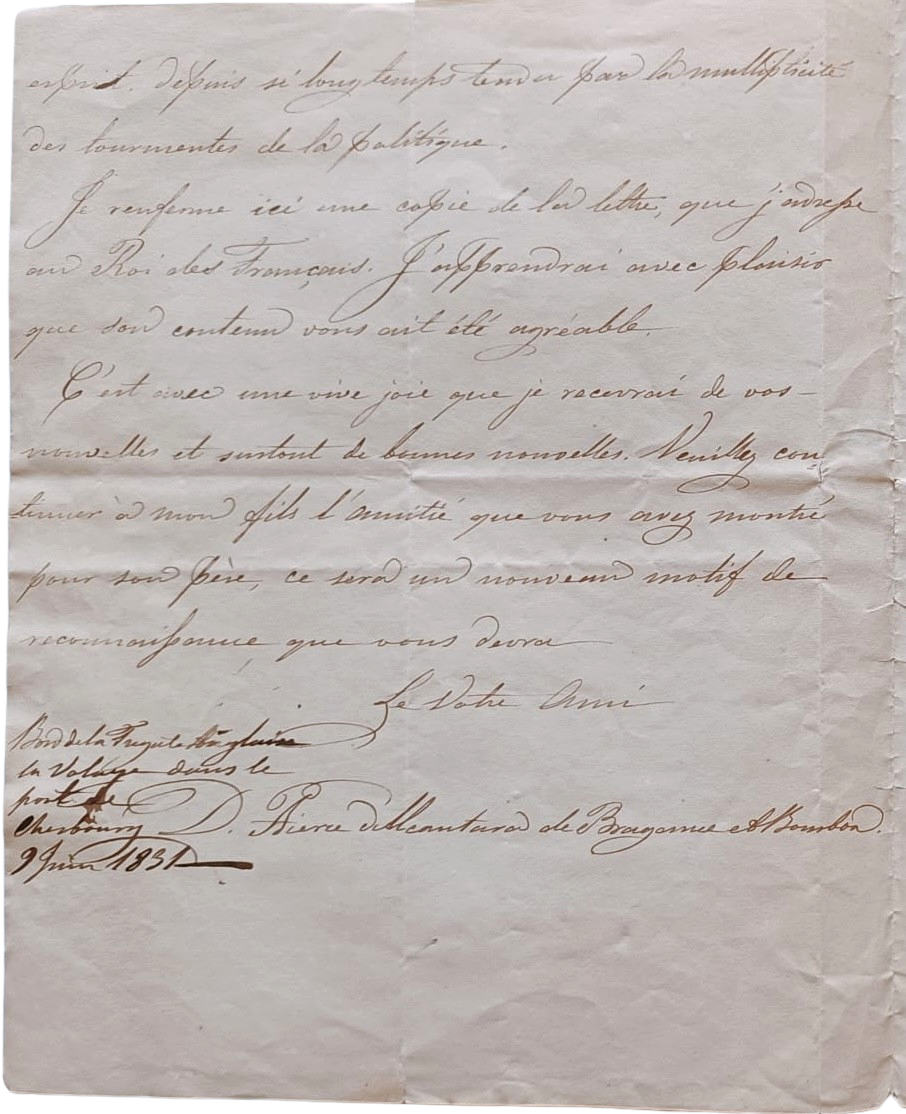 esprit. depuis si longtemps tendu par la multiplicité
des tourmentes de la politique.
Je renferme ici une copie de la lettre, que j'adresse
au Roi des Français. J'apprendrai avec plaisir
que son contenu vous ait été agréable.
C'est avec une vive joie que je recevrai de vos
nouvelles et surtout de bonnes nouvelles. Veuillez con
tinuer à mon fils l'amitié que vous avez montré
pour son père, ce sera un nouveau motif de
reconnaissance que vous devra
Le Votre Ami
Bord de la Fregate Anglaise
la Volage dans le
port de
Cherbourg
9 Juin 1831
D. Pierre d'Alcantara de Bragance et Bourbon.